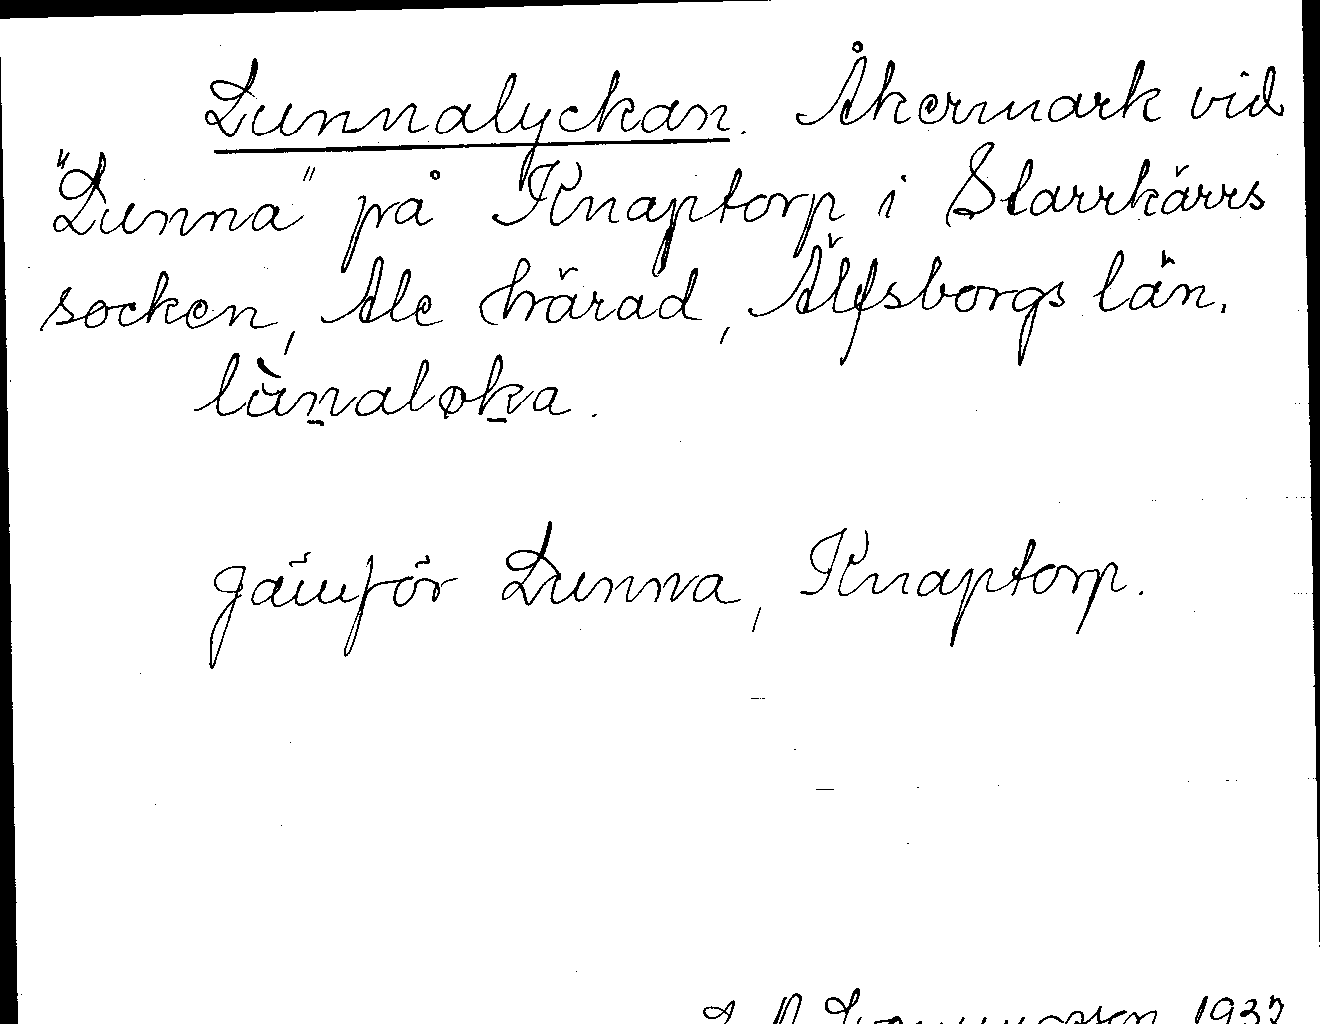 Lunnalyckan. Åkermark vid
"Lunna" på Knaptorp i Starrkärrs
socken, Ale härad, Älfsborgs län.
lùnaløka.
Jämför Lunna, Knaptorp.
1937